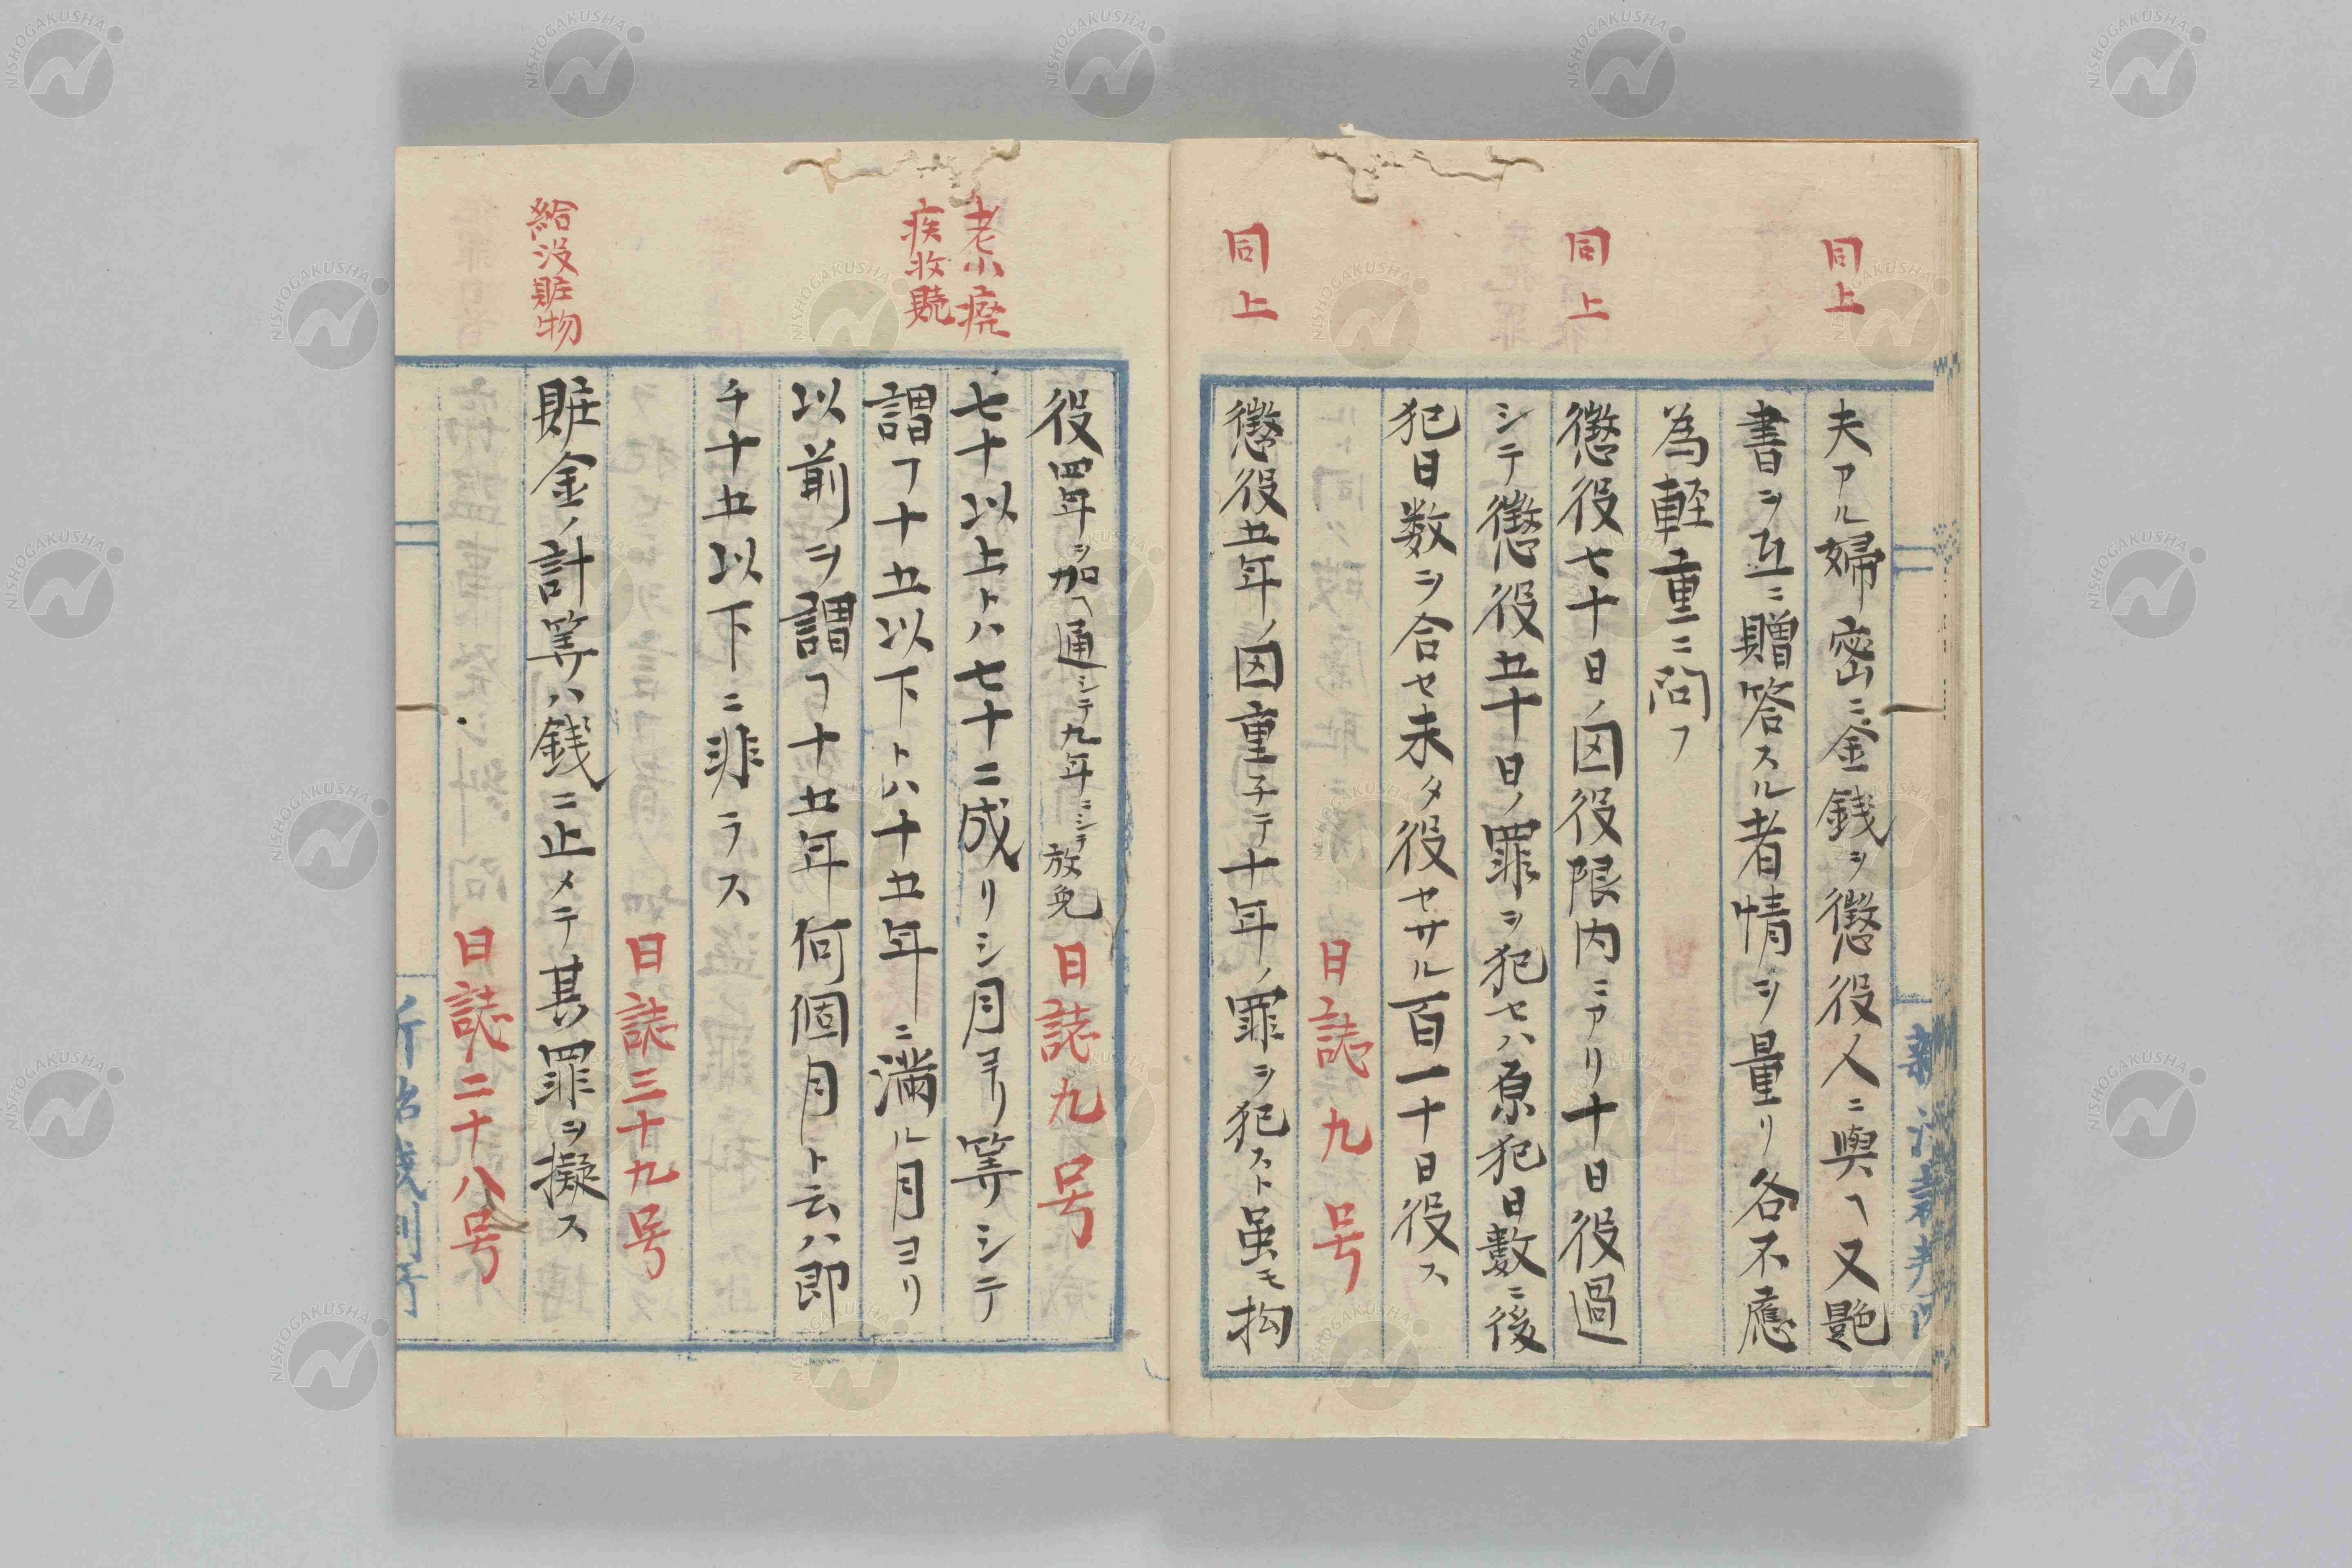 同上
夫アル婦密ニ金銭ヲ懲役人ニ與ヘ又艶
書ヲ互ニ贈答スル者情ヲ量リ各不應
為軽重ニ問フ
同上
懲役七十日ノ囚役限内ニアリ十日役過
シテ懲役五十日ノ罪ヲ犯セハ原犯日數ニ後
犯日数ヲ合セ未タ役セサル百一十日役ス
日誌九号
同上
懲役五年ノ囚重子テ十年ノ罪ヲ犯スト虽モ拘
役四年ヲ加ヘ通シテ九年ニシテ放免
日誌九号
老小癈
疾收贖
七十以上トハ七十ニ成リシ月ヨリ筭シテ
謂フ十五以下トハ十五年ニ満ル月ヨリ
以前ヲ謂フ十五年何個月ト云ハ即
チ十五以下ニ非ラス
日誌三十九号
給没賍物
賍金ノ計筭ハ銭ニ止メテ其罪ヲ擬ス
日誌二十八号
NISHOGAKUSHA